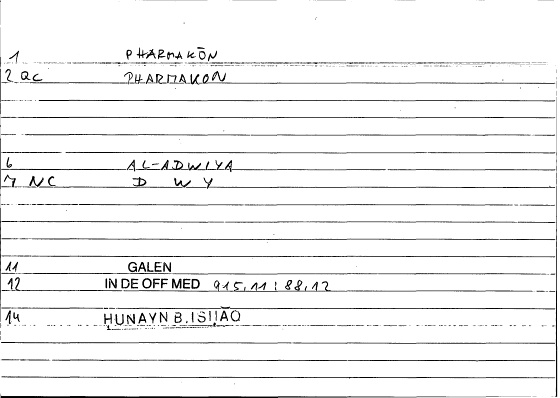 1 PHARMAKŌN
2 QC PHARMAKON
6 AL-ADWIYA
7 NC D W Y
11 GALEN
12 IN DE OFF MED 915,11 : 88,12
14 ḤUNAYN B. ISḤĀQ